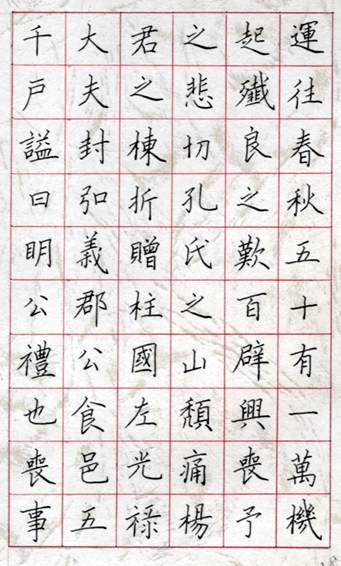 運往春秋五十有一萬機
起殲良之歎百辟興喪予
之悲切孔氏之山頹痛楊
君之棟折贈柱國左光祿
大夫封弘義郡公食邑五
千戶謚曰明公禮也喪事